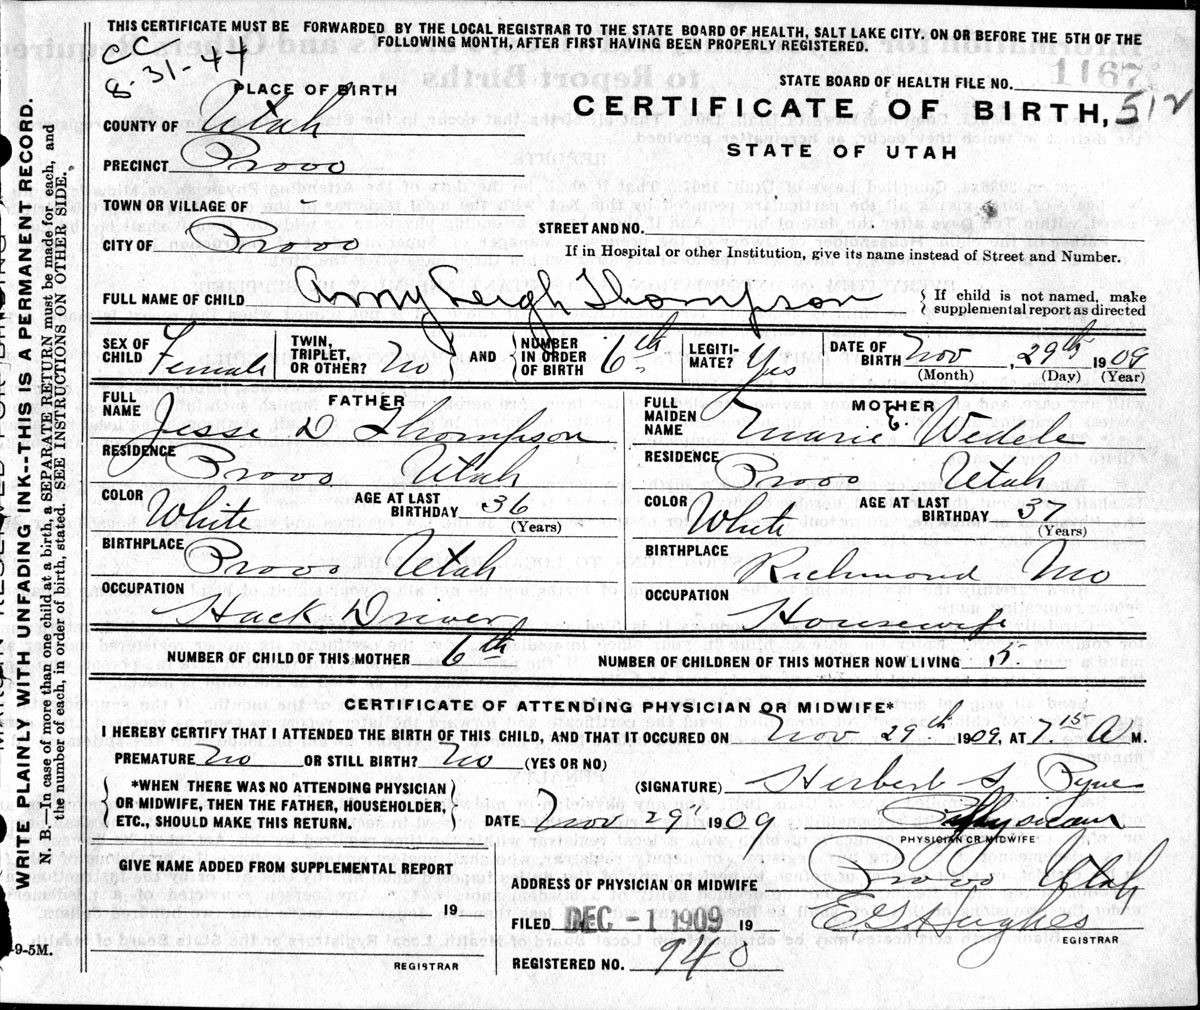 THIS CERTIFICATE MUST BE FORWARDED BY THE LOCAL REGISTRAR TO THE STATE BOARD OF HEALTH, SALT LAKE CITY, ON OR BEFORE THE 5TH OF THE
FOLLOWING MONTH, AFTER FIRST HAVING BEEN PROPERLY REGISTERED.
CC
8-31-44
1167
STATE BOARD OF HEALTH FILE NO.
PLACE OF BIRTH
CERTIFICATE OF BIRTH, 512
STATE OF UTAH
COUNTY OF Utah
PRECINCT Provo
TOWN OR VILLAGE OF -
CITY OF Provo
STREET AND NO.
If in Hospital or other Institution, give its name instead of Street and Number.
FULL NAME OF CHILD Amy Leigh Thompson { If child is not named, make
supplemental report as directed
SEX OF CHILD Female
TWIN, TRIPLET, OR OTHER? No } AND { NUMBER IN ORDER OF BIRTH 6th
LEGITI-MATE? Yes
DATE OF BIRTH Nov, 29th 1909
(Month) (Day) (Year)
FATHER
FULL NAME Jesse D Thompson
RESIDENCE Provo Utah
COLOR White AGE AT LAST BIRTHDAY 36
(Years)
BIRTHPLACE Provo Utah
OCCUPATION Hack Driver
MOTHER
FULL MAIDEN NAME Marie E. Wedele
RESIDENCE Provo Utah
COLOR White AGE AT LAST BIRTHDAY 37
(Years)
BIRTHPLACE Richmond Mo
OCCUPATION Housewife
NUMBER OF CHILD OF THIS MOTHER 6th NUMBER OF CHILDREN OF THIS MOTHER NOW LIVING
CERTIFICATE OF ATTENDING PHYSICIAN OR MIDWIFE*
I HEREBY CERTIFY THAT I ATTENDED THE BIRTH OF THIS CHILD, AND THAT IT OCCURED ON Nov 29th 1909, AT 7.15 A M.
PREMATURE No OR STILL BIRTH? No (YES OR NO)
{ *WHEN THERE WAS NO ATTENDING PHYSICIAN
OR MIDWIFE, THEN THE FATHER, HOUSEHOLDER,
ETC., SHOULD MAKE THIS RETURN. }
(SIGNATURE) Herbert S Pyne
DATE Nov 29" 1909 Physician
PHYSICIAN OR MIDWIFE
GIVE NAME ADDED FROM SUPPLEMENTAL REPORT
19
REGISTRAR
ADDRESS OF PHYSICIAN OR MIDWIFE Provo Utah
FILED DEC -1 1909 19 E. S. Hughes
REGISTRAR
REGISTERED NO. 940
WRITE PLAINLY WITH UNFADING INK--THIS IS A PERMANENT RECORD.
N. B.—In case of more than one child at a birth, a SEPARATE RETURN must be made for each, and
the number of each, in order of birth, stated. SEE INSTRUCTIONS ON OTHER SIDE.
-9-5M.